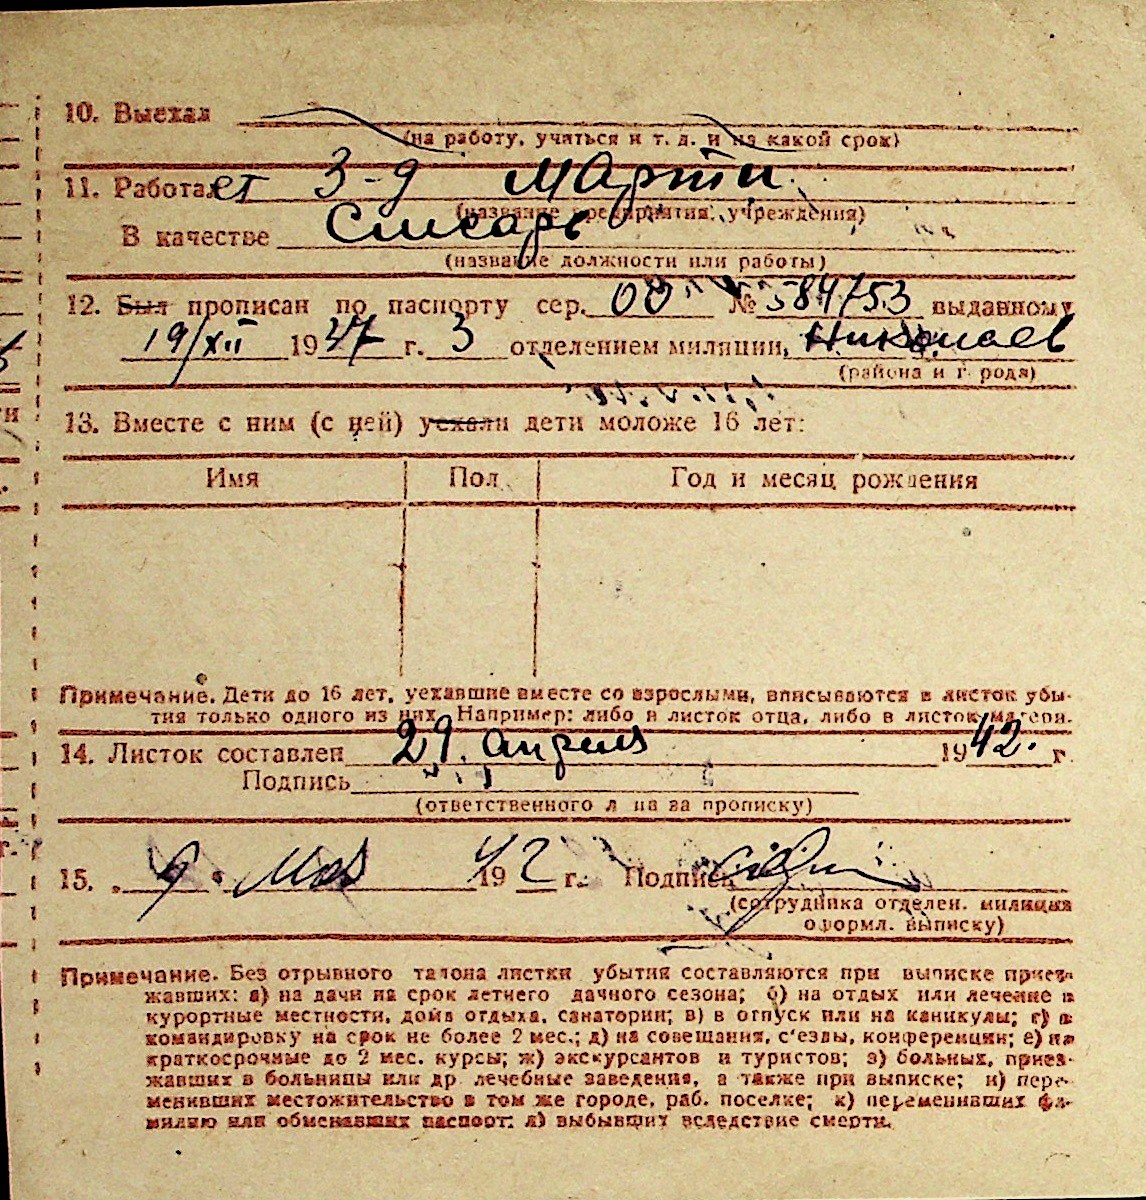 10. Выехал
(на работу, учиться и т. д. и на какой срок)
11. Работает З-д Марти
(название предприятия, учреждения)
В качестве Слесарь
(название должности или работы)
12. Был прописан по паспорту сер. 00 № 584753 выданному
19/XII 1937 г. 3 отделением милиции, Николаев
(района и города)
13. Вместе с ним (с ней) уехали дети моложе 16 лет:
Имя Пол Год и месяц рождения
Примечание. Дети до 16 лет, уехавшие вместе со взрослыми, вписываются в листок убы-
тия только одного из них. Например: либо в листок отца, либо в листок матери.
14. Листок составлен 29. апреля 1942. г.
Подпись
(ответственного лица за прописку)
15. „9“ Мая 1942 г. Подпись
(сотрудника отделен. милиции
оформл. выписку)
Примечание. Без отрывного талона листки убытия составляются при выписке приез-
жавших: а) на дачи на срок летнего дачного сезона; б) на отдых или лечение в
курортные местности, дома отдыха, санатории; в) в отпуск или на каникулы; г) в
командировку на срок не более 2 мес.; д) на совещания, с'езды, конференции; е) на
краткосрочные до 2 мес. курсы; ж) экскурсантов и туристов; з) больных, приез-
жавших в больницы или др. лечебные заведения, а также при выписке; и) пере-
менивших местожительство в том же городе, раб. поселке; к) переменивших фа-
милию или обменявших паспорт; л) выбывших вследствие смерти.